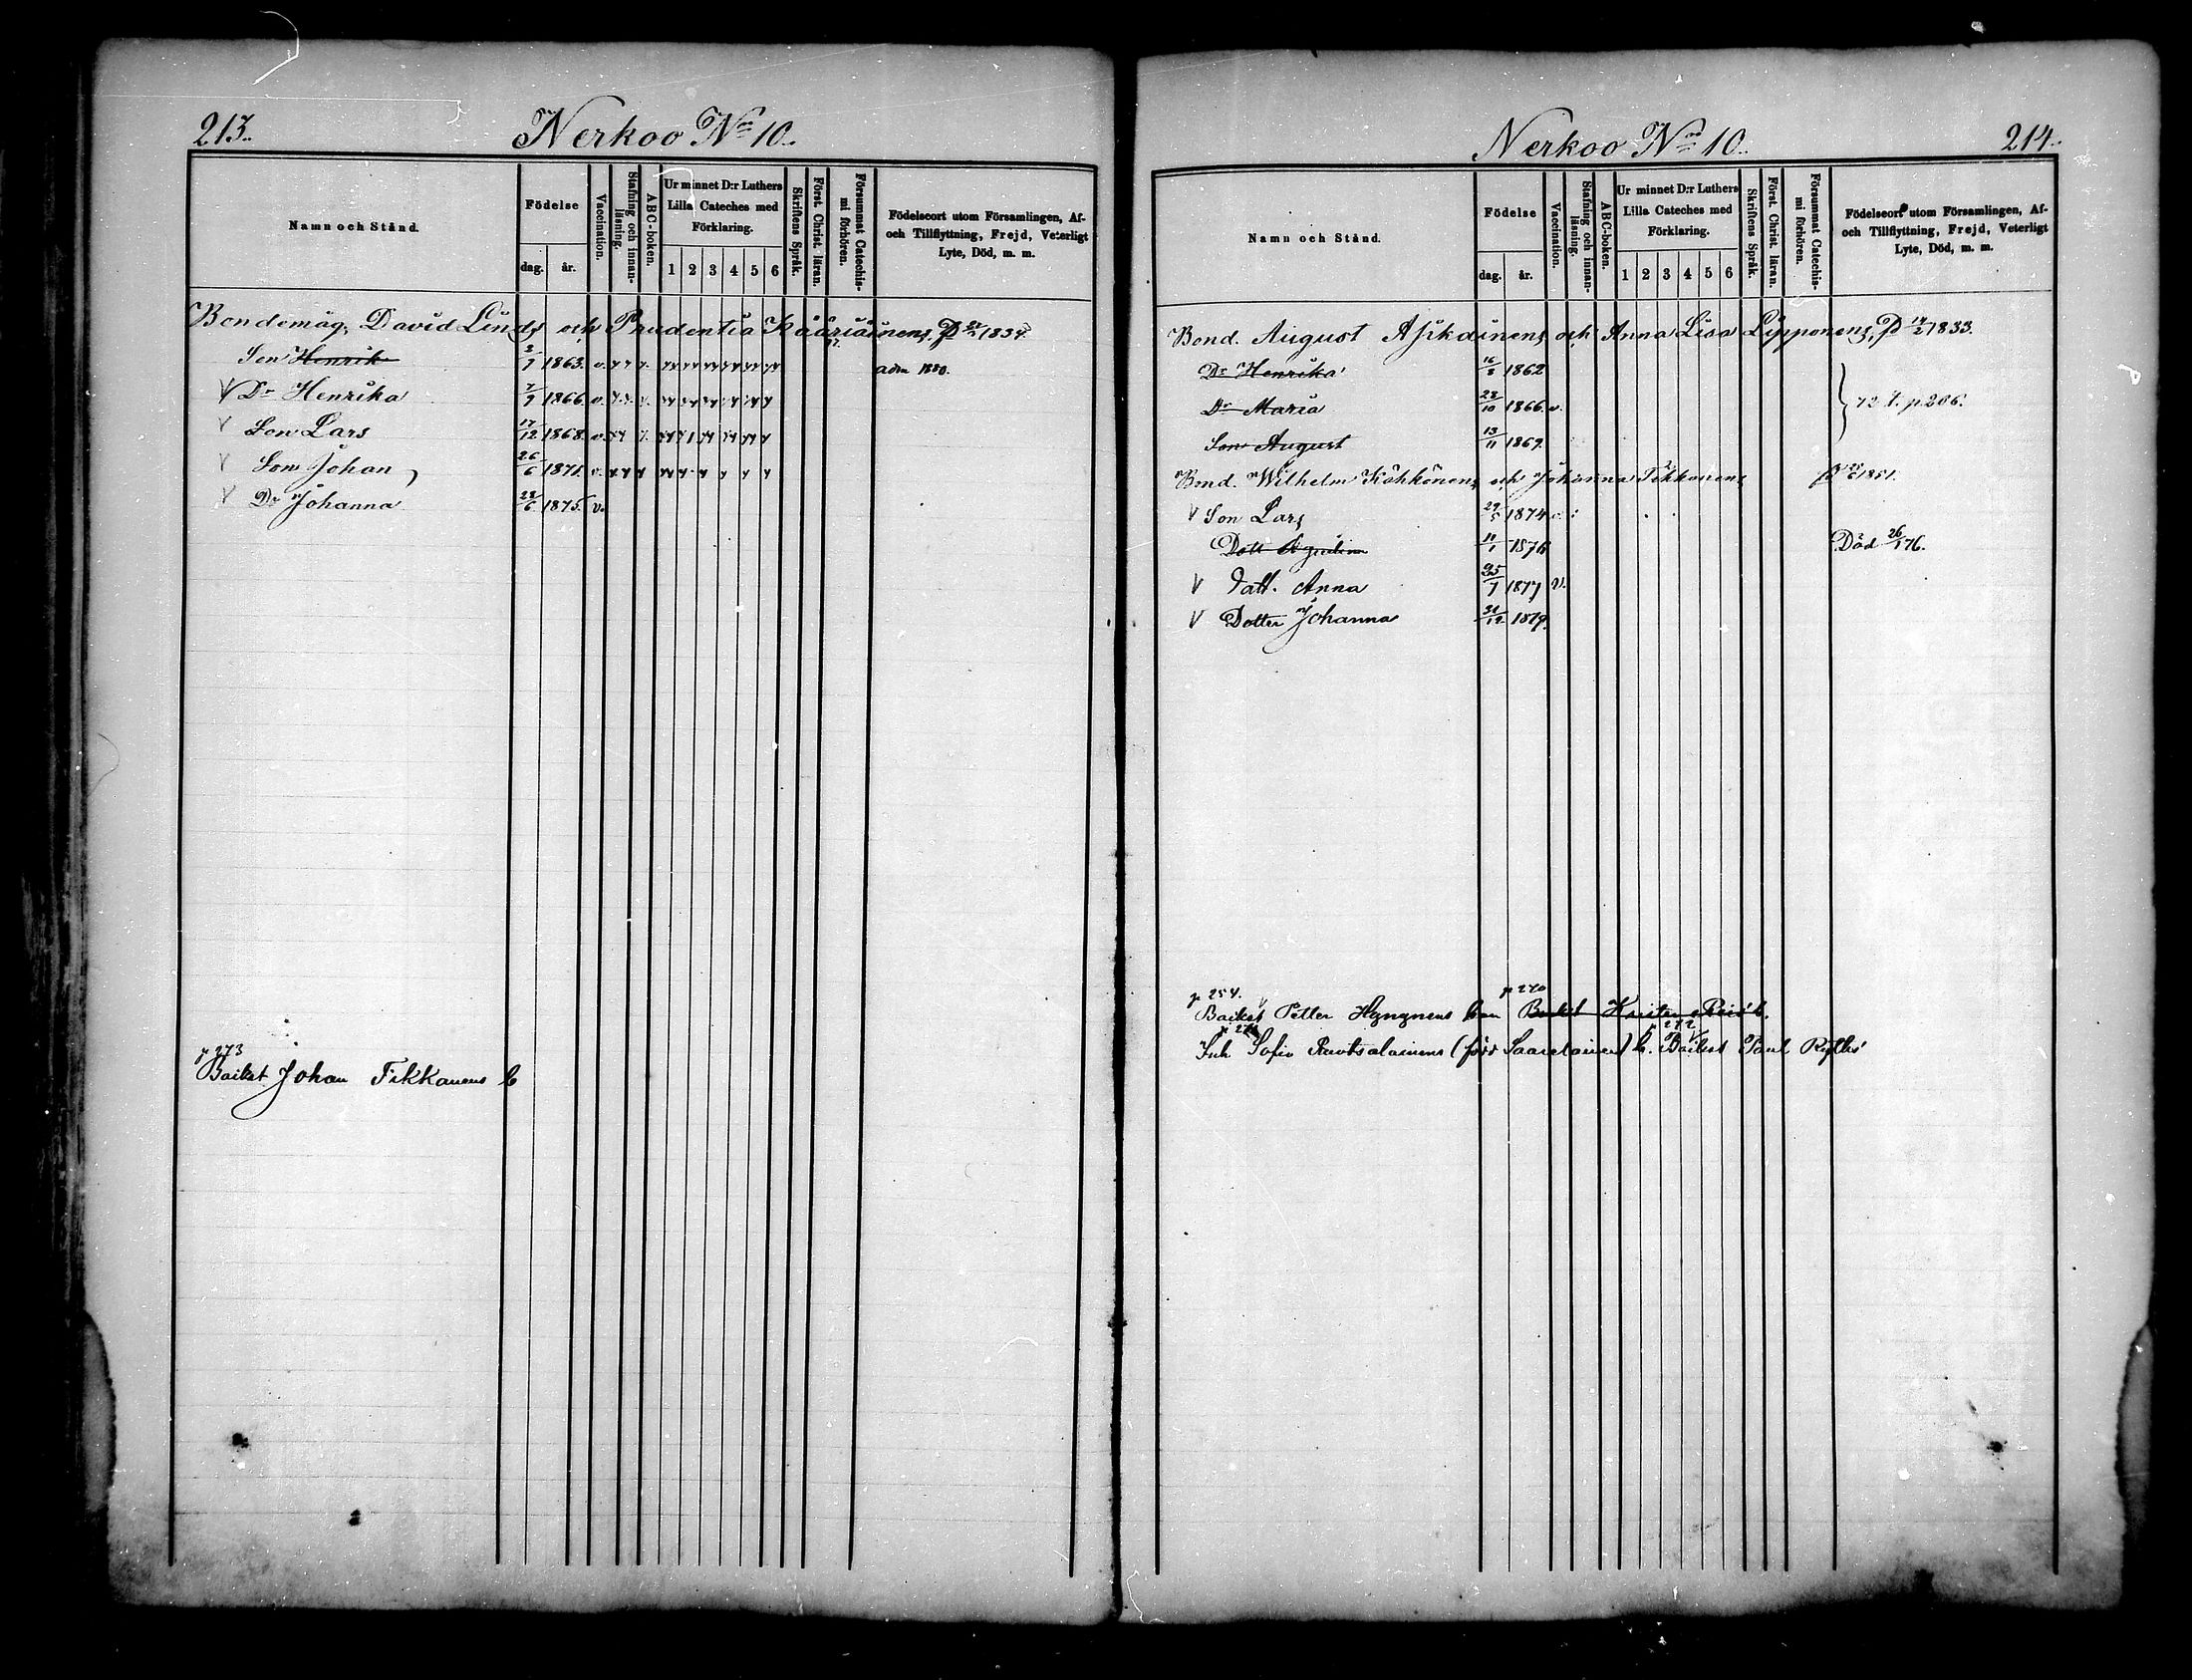 213.
Nerkoo No 10.
Namn och Stånd.
Födelse
dag.
år.
Vaccination.
Stafning och innanläsning.
ABC-boken.
Ur minnet D:r Luthers Lilla Cateches med Förklaring.
1 2 3 4 5 6
Skriftens Språk.
Först. Christ. läran.
Försummat Catechismi förhören.
Födelseort utom Församlingen, Af- och Tillflyttning, Frejd, Veterligt Lyte, Död, m. m.
Bondemåg. David Linds och Prudentia Kääriäinens 1834.
Son Henrik 2/7 1863. v. adm 1880.
V Dr Henrika 7/9 1866. v.
V Son Lars 17/12 1868. v.
V Son Johan 26/6 1871. v.
V Dr Johanna 28/6 1875. v.
p 273
Backst Johan Tikkanens b
Nerkoo No 10.
214.
Namn och Stånd.
Födelse
dag.
år.
Vaccination.
Stafning och innanläsning.
ABC-boken.
Ur minnet D:r Luthers Lilla Cateches med Förklaring.
1 2 3 4 5 6
Skriftens Språk.
Först. Christ. läran.
Försummat Catechismi förhören.
Födelseort utom Församlingen, Af- och Tillflyttning, Frejd, Veterligt Lyte, Död, m. m.
Bond. August Asikainens och Anna Lisa Lipponens 14/2 1833.
Dr Henrika 16/8 1862
Dr Maria 28/10 1866. v. p. 206.
Son August 13/11 1869.
Bond. Wilhelm Kähkönens och Johanna Tikkanens 1851.
V Son Lars 29/5 1874 v.
Dott 11/1 1876 Död 26/1 76.
V Dott. Anna 25/7 1877 v.
V Dotter Johanna 31/12 1879.
p 254. p 270
Backst Petter Hyngnens Backst Krister
p 272
Inh Sofia Rautsalainens (född Saarelainen) b. Backst Paul